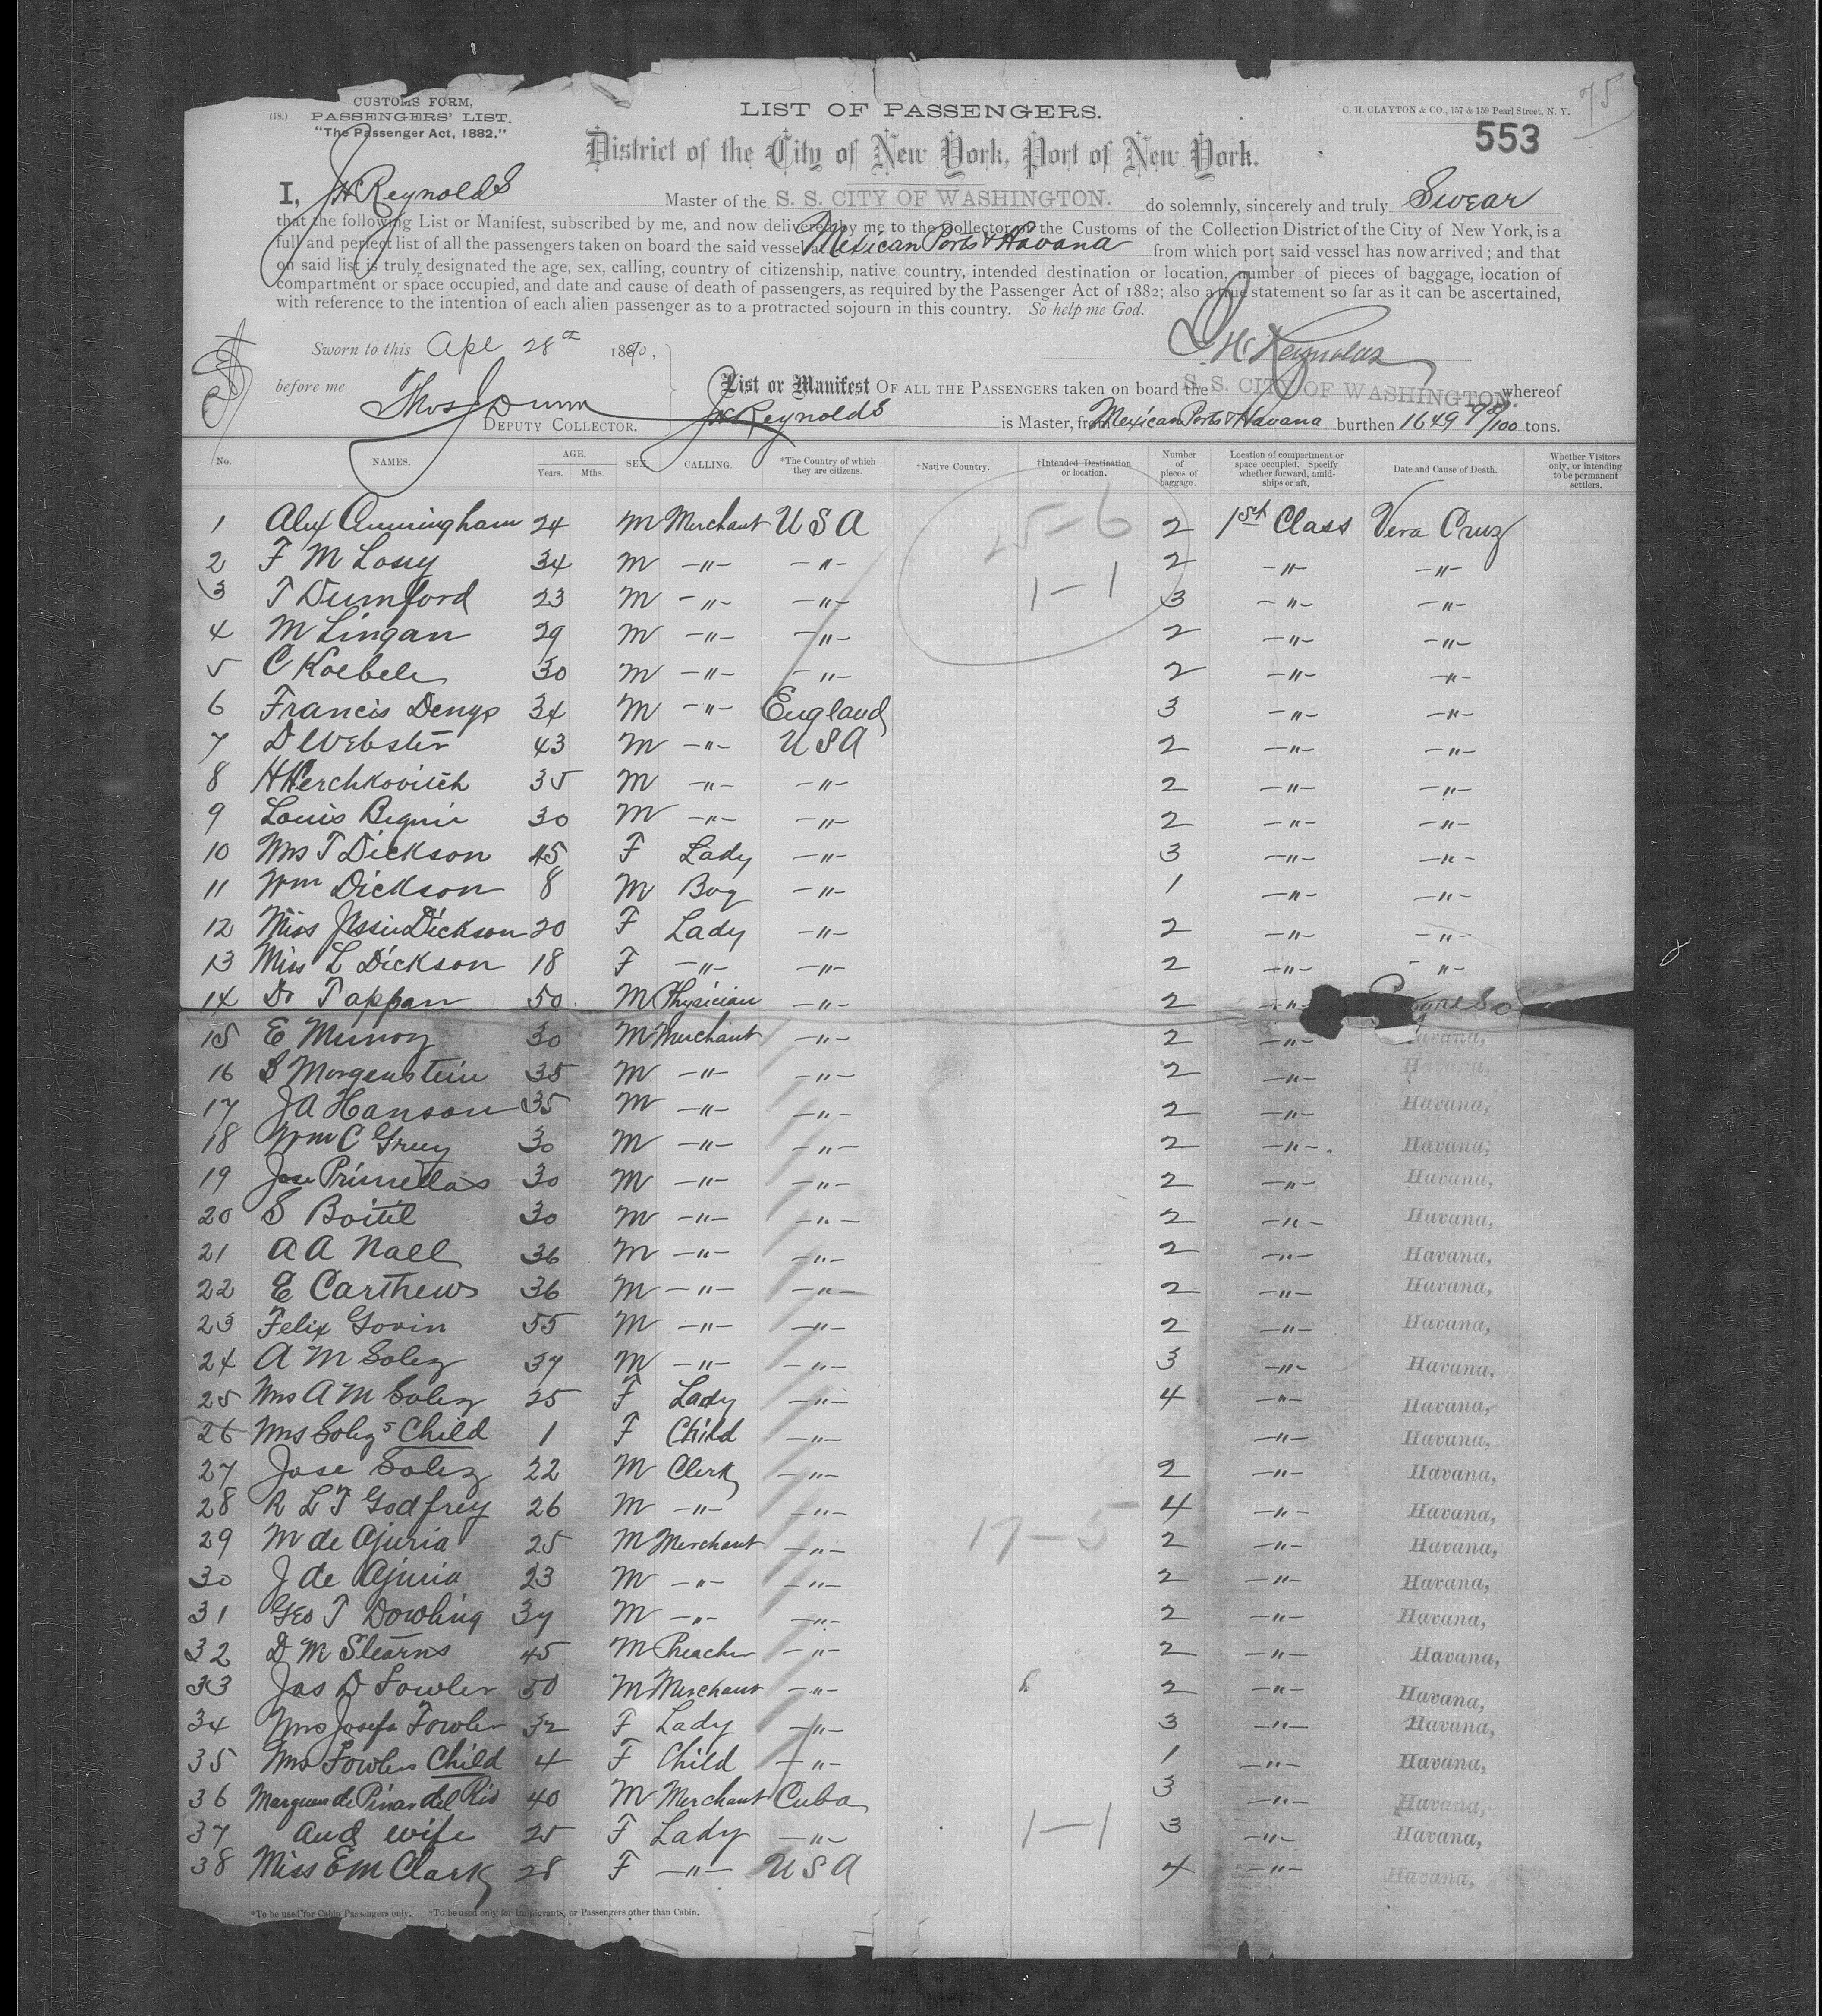 75
CUSTOMS FORM,
(18.) PASSENGERS' LIST.
"The Passenger Act, 1882."
LIST OF PASSENGERS.
C. H. CLAYTON & CO., 157 & 159 Pearl Street, N. Y.
553
District of the City of New York, Port of New York.
I, J H Reynolds Master of the S. S. CITY OF WASHINGTON. do solemnly, sincerely and truly Swear
that the following List or Manifest, subscribed by me, and now delivered by me to the Collector of the Customs of the Collection District of the City of New York, is a
full and perfect list of all the passengers taken on board the said vessel at Mexican Ports & Havana from which port said vessel has now arrived; and that
on said list is truly designated the age, sex, calling, country of citizenship, native country, intended destination or location, number of pieces of baggage, location of
compartment or space occupied, and date and cause of death of passengers, as required by the Passenger Act of 1882; also a true statement so far as it can be ascertained,
with reference to the intention of each alien passenger as to a protracted sojourn in this country. So help me God.
J H Reynolds
Sworn to this Apl 28th 1890,
before me Thos J Dunn
DEPUTY COLLECTOR.
List or Manifest OF ALL THE PASSENGERS taken on board the S. S. CITY OF WASHINGTON. whereof
J H Reynolds is Master, from Mexican Ports & Havana burthen 1649 98/100 tons.
No. NAMES. AGE. Years. Mths. SEX. CALLING. *The Country of which they are citizens. †Native Country. †Intended Destination or location. Number of pieces of baggage. Location of compartment or space occupied. Specify whether forward, amidships or aft. Date and Cause of Death. Whether Visitors only, or intending to be permanent settlers.
1 Alex Cunningham 24 M Merchant U S A 25-6 2 1st Class Vera Cruz
2 F M 34 M -"- -"- 2 -"- -"-
3 T Dumford 23 M -"- -"- 1-1 3 -"- -"-
4 M Lingan 29 M -"- -"- 2 -"- -"-
5 C Koebele 30 M -"- -"- 2 -"- -"-
6 Francis Denys 34 M -"- England 3 -"- -"-
7 D Webster 43 M -"- U S A 2 -"- -"-
8 H Herchkovitch 35 M -"- -"- 2 -"- -"-
9 Louis 30 M -"- -"- 2 -"- -"-
10 Mrs T Dickson 45 F Lady -"- 3 -"- -"-
11 Wm Dickson 8 M Boy -"- 1 -"- -"-
12 Miss Jessie Dickson 20 F Lady -"- 2 -"- -"-
13 Miss L Dickson 18 F -"- -"- 2 -"- -"-
14 Dr Tappan 50 M Physician -"- 2 -"-
15 E Munoz 30 M Merchant -"- 2 -"- Havana,
16 S Morganstein 35 M -"- -"- 2 -"- Havana,
17 J A Hanson 35 M -"- -"- 2 -"- Havana,
18 Wm C Greey 30 M -"- -"- 2 -"- Havana,
19 Jose Primellas 30 M -"- -"- 2 -"- Havana,
20 S Boitel 30 M -"- -"- 2 -"- Havana,
21 A A Nall 36 M -"- -"- 2 -"- Havana,
22 E Carthews 36 M -"- -"- 2 -"- Havana,
23 Felix Govin 55 M -"- -"- 2 -"- Havana,
24 A M Solez 37 M -"- -"- 3 -"- Havana,
25 Mrs A M Solez 25 F Lady -"- 4 -"- Havana,
26 Mrs Solez's Child 1 F Child -"- -"- Havana,
27 Jose Solez 22 M Clerk -"- 2 -"- Havana,
28 R L T Godfrey 26 M -"- -"- 4 -"- Havana,
29 M de Ajuria 25 M Merchant -"- 17-5 2 -"- Havana,
30 J de Ajuria 23 M -"- -"- 2 -"- Havana,
31 Geo T Dowling 37 M -"- -"- 2 -"- Havana,
32 D M Stearns 45 M Preacher -"- 2 -"- Havana,
33 Jas D Fowler 50 M Merchant -"- 2 -"- Havana,
34 Mrs Josefa Fowler 32 F Lady -"- 3 -"- Havana,
35 Mrs Fowlers Child 4 F Child -"- 1 -"- Havana,
36 Marques de Pinar del Rio 40 M Merchant Cuba 3 -"- Havana,
37 and wife 25 F Lady -"- 1-1 3 -"- Havana,
38 Miss E M Clark 28 F -"- U S A 4 -"- Havana,
*To be used for Cabin Passengers only. †To be used only for Immigrants, or Passengers other than Cabin.